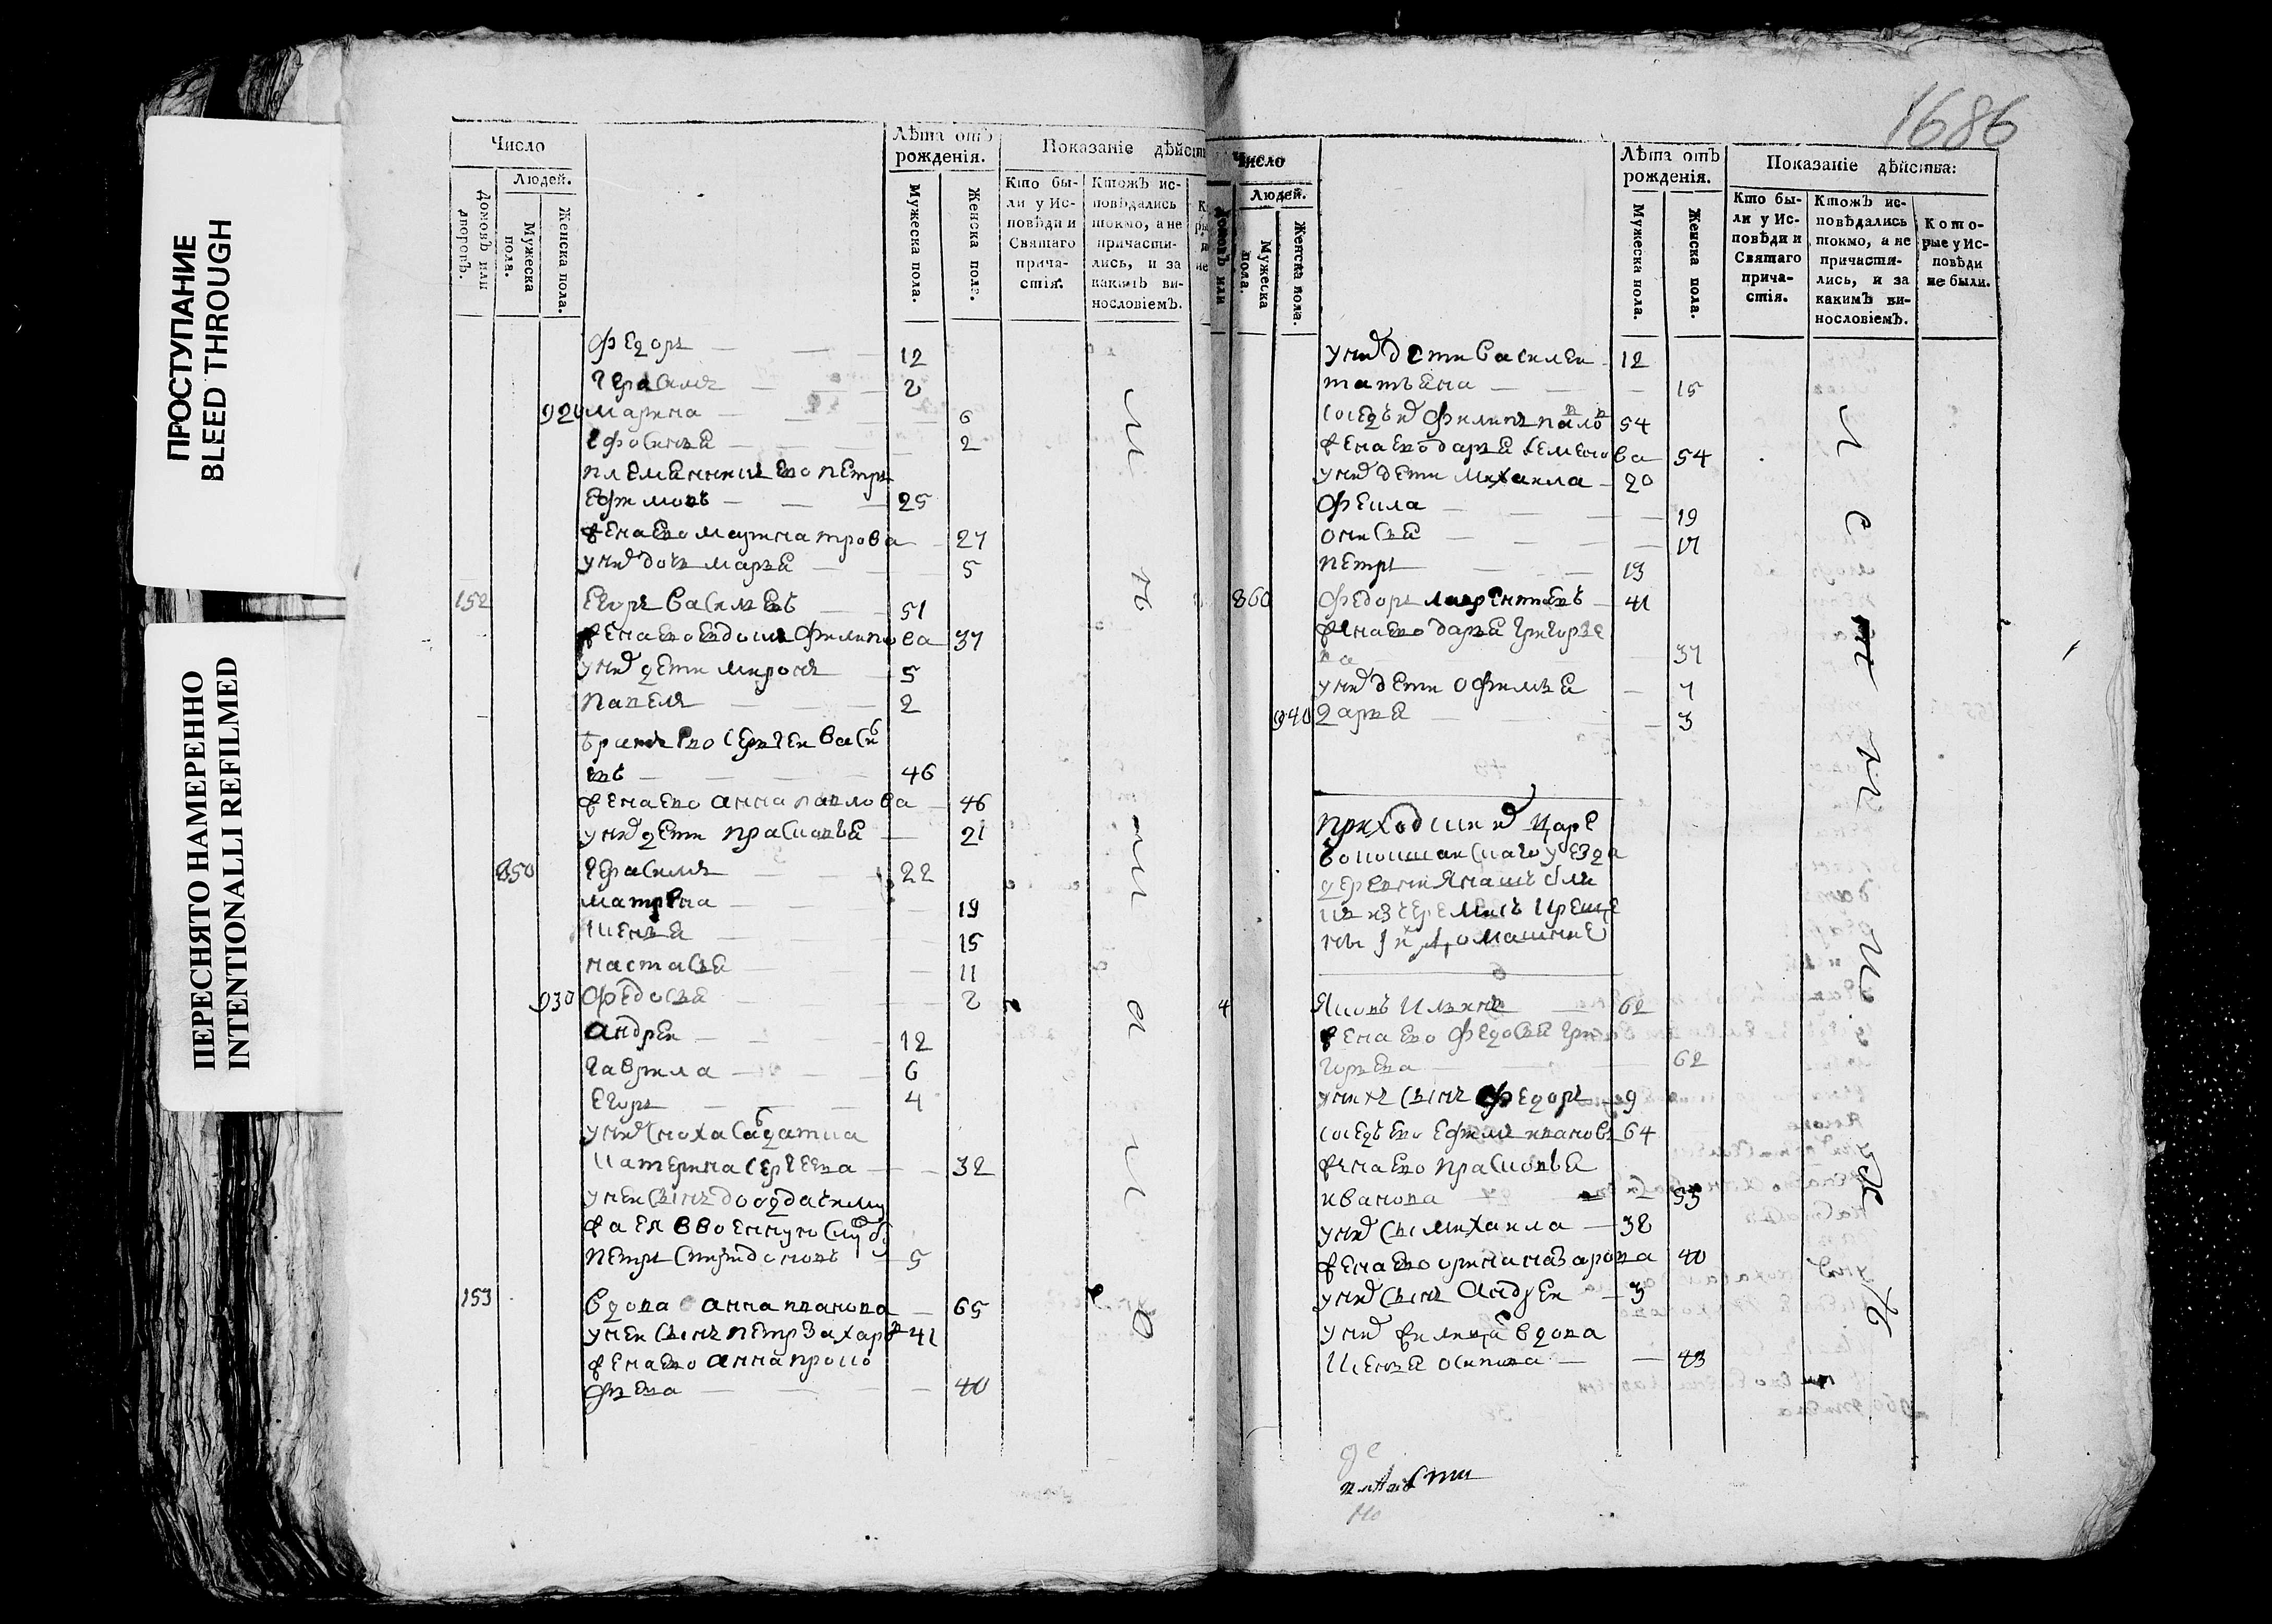 ПРОСТУПАНИЕ
BLEED THROUGH
ПЕРЕСНЯТО НАМЕРЕННО
INTENTIONALLI REFILMED
Число
Людей.
Домовъ или дворовъ.
Мужеска пола.
Женска пола.
Лѣта отъ рожденія.
Мужеска пола.
Женска пола.
Показаніе дѣйств
Кто бы-
ли у Ис-
повѣди и
Святаго
прича-
стія.
Ктожъ ис-
повѣдались
токмо, а не
причасти-
лись, и за
какимъ ви-
нословіемъ.
Федоръ 12
Герасимъ 2
920 Марина 6
Ефросинья 2
племянникъ ево петръ
Ефимовъ 25
жена ево марина 27
у них дочь марья 5
152 Егоръ Василевъ 51
жена ево Евдокия Филипова 37
у них дети миронъ 5
павелъ 2
братъ ево Сергеи Васи
евъ 46
жена ево анна павлова 46
у них дети прасковья 21
850 Герасимъ 22
матрена 19
Ксенья 15
настасья 11
930 Федосья 2
андреи 12
Гаврила 6
Егоръ 4
у них сноха салдатка
Катерина Сергеева 32
у неи сынъ до отдачи му
жа ея в военную служб
петръ Спиридоновъ 5
153 вдова анна иванова 65
у неи сынъ петръ Захаров 41
жена ево анна проко
фьева 40
1686
Число
Людей.
Домовъ или
Мужеска пола.
Женска пола.
Лѣта отъ рожденія.
Мужеска пола.
Женска пола.
Показаніе дѣйства:
Кто бы-
ли у Ис-
повѣди и
Святаго
прича-
стія.
Ктожъ ис-
повѣдались
токмо, а не
причасти-
лись, и за
какимъ ви-
нословіемъ.
Кото-
рые у Ис-
повѣди
не были.
у них дети василеи 12
татьяна 15
соседъ их Филипъ павлов 54
жена ево дарья семенова 54
у них дети михаила 20
Фекла 19
онисья 17
петръ 13
860 Федоръ лаврентьевъ 41
жена ево дарья григорье
ва 37
у них дети офимья 7
940 дарья 3
приходских царе
вококшаискаго уезда
деревни
из черемисъ креще
ны и их домашние
4 Яковъ Ильинъ 62
жена ево Федосья Гри
горьева 62
у них сынъ Федоръ 9
соседъ ево Ефимъ ивановъ 64
жена ево прасковья
иванова 55
у них сынъ михаила 38
жена ево орина назарова 40
у них сынъ Андреи 3
у них жилица вдова
Ксенья осипова 43